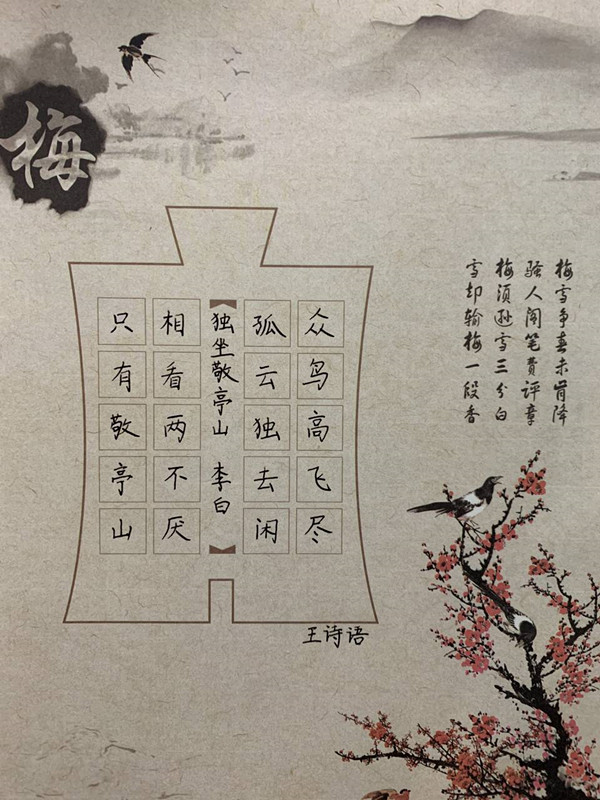 梅
梅雪争春未肯降
骚人阁笔费评章
梅须逊雪三分白
雪却输梅一段香
众鸟高飞尽
孤云独去闲
独坐敬亭山 李白
相看两不厌
只有敬亭山
王诗语